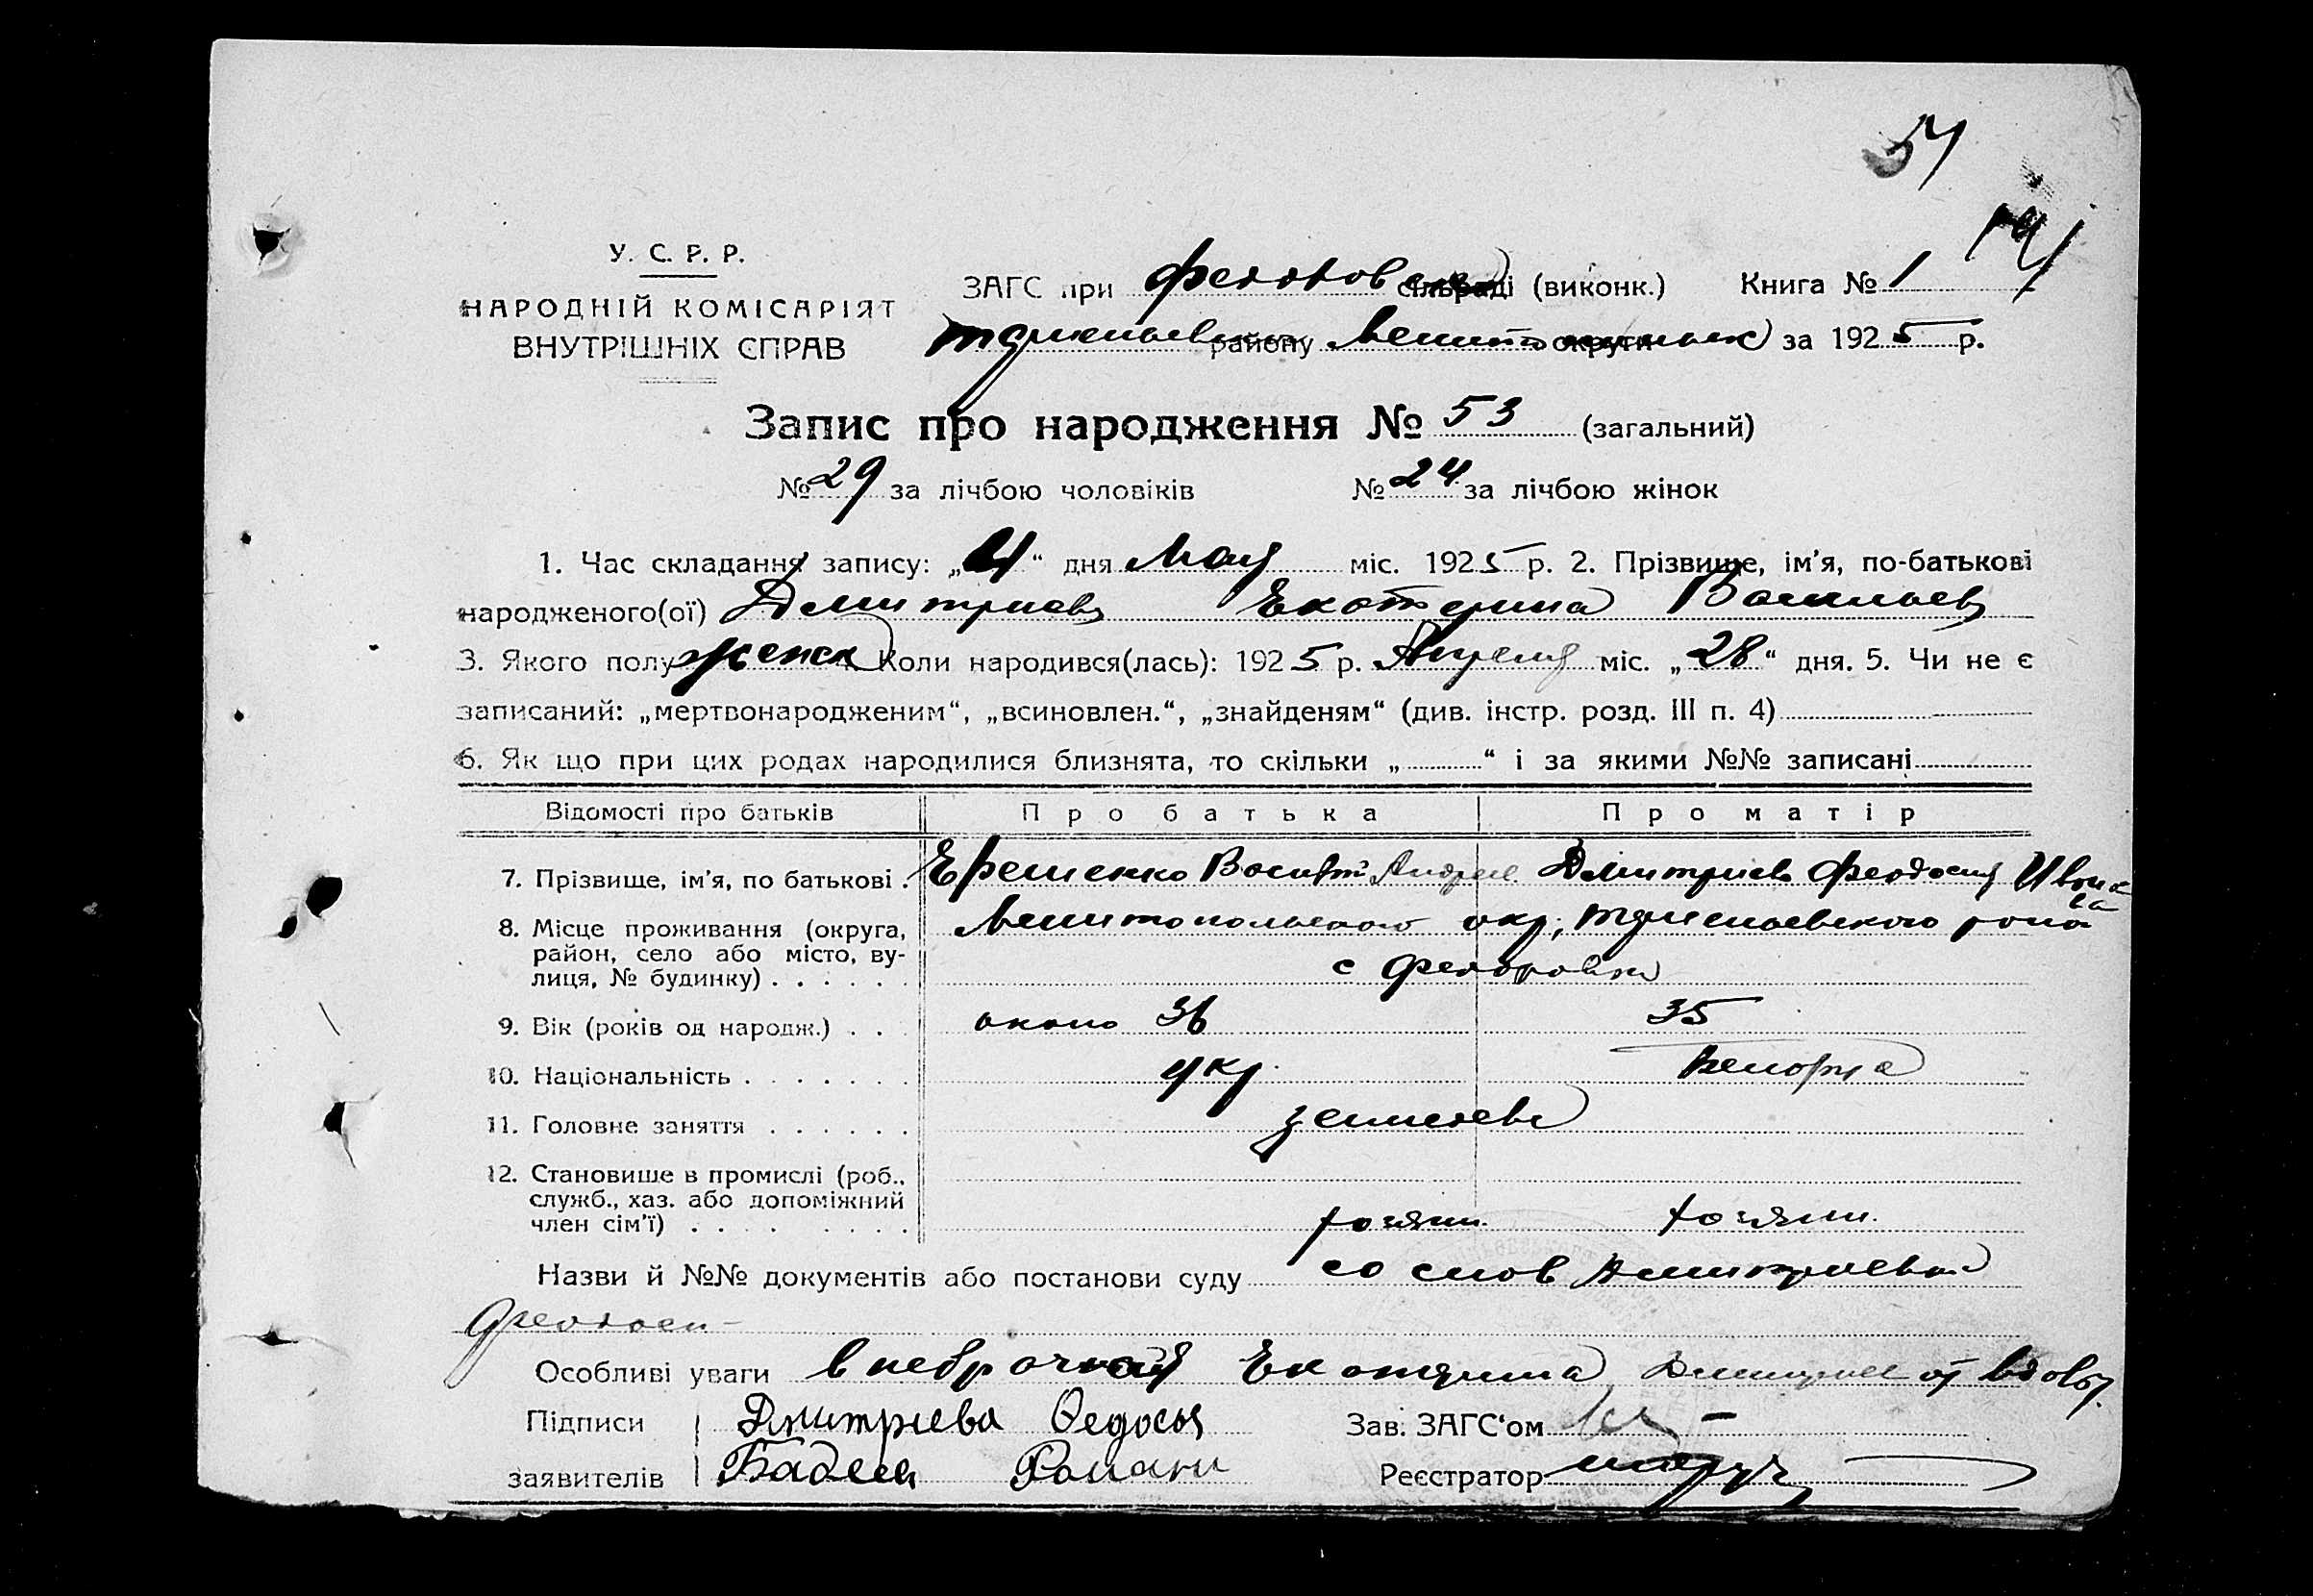 54
У. С. Р. Р.
НАРОДНІЙ КОМІСАРІЯТ
ВНУТРІШНІХ СПРАВ
ЗАГС при сільраді (виконк.) Книга № 1
району округи за 1925 р.
Запис про народження № 53 (загальний)
№ 29 за лічбою чоловіків № 24 за лічбою жінок
1. Час складання запису: „4“ дня Мая міс. 1925 р. 2. Прізвище, ім’я, по-батькові
народженого(ої) Дмитриева Екатерина Васильев
3. Якого полу женск Коли народився(лась): 1925 р. Апреля міс. „28“ дня. 5. Чи не є
записаний: „мертвонародженим“, „всиновлен.“, „знайденям“ (див. інстр. розд. III п. 4)
6. Як що при цих родах народилися близнята, то скільки „ “ і за якими №№ записані
Відомості про батьків Про батька Про матір
7. Прізвище, ім’я, по батькові . Ефеменко Андрее Дмитриева Феодосия Иванова
8. Місце проживання (округа, Мелитопольского окр,
район, село або місто, ву- с Федоровка
лиця, № будинку) . . . . . .
9. Вік (років од народж.) . . . около 36 35
10. Національність . . . . . . . укр
11. Головне заняття . . . . . .
12. Становище в промислі (роб..
служб., хаз. або допоміжний
член сім’ї) . . . . . . . . хозяин. хозяин.
Назви й №№ документів або постанови суду со слов Дмитриевой
Феодоси-
Особливі уваги внебрачная Екатерина от вдовы.
Підписи Дмитриева Федося Зав. ЗАГС‘ом
заявителів Реєстратор